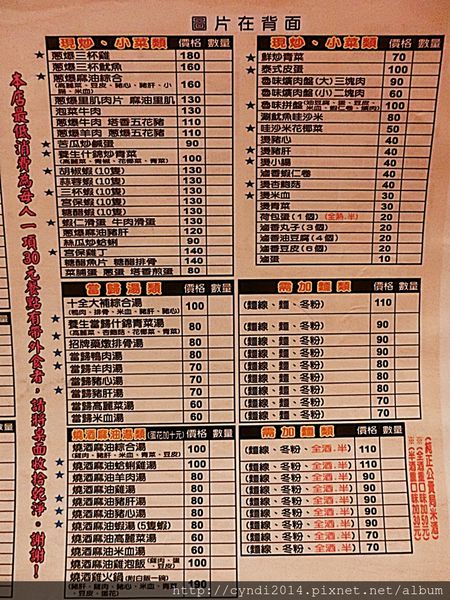 圖片在背面
現炒、小菜類 價格 數量
★ 蔥爆三杯雞 180
★ 蔥爆三杯魷魚 160
★ 蔥爆麻油綜合 160
蔥爆里肌肉片 麻油里肌 130
泡菜牛肉 130
蔥爆牛肉 塔香五花豬 110
蔥爆羊肉 蔥爆五花豬 130
★ 苦瓜炒鹹蛋 90
★ 養生什錦炒青菜 100
(高麗菜、青椒、花椰菜、青菜)
★ 胡椒蝦(10隻) 130
蒜蓉蝦(10隻) 130
★ 三杯蝦(10隻) 130
宮保蝦(10隻) 130
糖醋蝦(10隻) 130
★ 蝦仁滑蛋 牛肉滑蛋 130
蔥爆麻油豬肝 120
絲瓜炒蛤蜊 90
★ 宮保雞丁 140
糖醋魚片 糖醋排骨 140
菜脯蛋 蔥蛋 塔香煎蛋 80
現炒、小菜類 價格 數量
★ 鮮炒青菜 70
★ 泰式皮蛋 100
★ 魯味爌肉盤(大)三塊肉 90
魯味爌肉盤(小)二塊肉 60
★ 魯味拼盤 100
涮魷魚哇沙米 80
★ 哇沙米花椰菜 50
燙豬心 80
★ 燙豬肝 80
★ 燙小腸 40
滷香蝦仁卷 40
★ 燙杏鮑菇 40
★ 燙米血 30
燙青菜 30
荷包蛋(1個) (全熟.半) 20
滷香丸子(3個) 20
滷香油豆腐(4個) 20
滷香豆皮(6個) 20
滷蛋 10
當歸湯類 價格 數量
十全大補綜合湯 100
(鴨肉、排骨、米血、豬肝、豬心)
★ 養生當歸什錦青菜湯 80
★ 招牌藥燉排骨湯 80
★ 當歸鴨肉湯 80
當歸羊肉湯 70
當歸豬心湯 70
當歸豬肝湯 70
當歸高麗菜湯 60
當歸米血湯 60
需加麵類 價格 數量
(麵線、麵、冬粉) 110
(麵線、麵、冬粉) 90
(麵線、麵、冬粉) 90
(麵線、麵、冬粉) 90
(麵線、麵、冬粉) 80
(麵線、麵、冬粉) 80
(麵線、麵、冬粉) 80
(麵線、麵、冬粉) 70
(麵線、麵、冬粉) 70
燒酒麻油湯類(蛋花加十元) 價格 數量
燒酒麻油綜合湯 100
★ 燒酒麻油蛤蜊雞湯 80
燒酒麻油羊肉湯 80
★ 燒酒麻油雞湯 80
★ 燒酒麻油豬肝湯 80
★ 燒酒麻油豬心湯 80
★ 燒酒麻油蝦湯(5隻蝦) 80
燒酒麻油高麗菜湯 60
燒酒麻油米血湯 60
燒酒麻油雞泡飯 80
燒酒雞火鍋(附白飯一碗) 190
需加麵類 價格 數量
(麵線、冬粉、全酒.半) 110
(麵線、冬粉、全酒.半) 90
(麵線、冬粉、全酒.半) 90
(麵線、冬粉、全酒.半) 90
(麵線、冬粉、全酒.半) 90
(麵線、冬粉、全酒.半) 90
(麵線、冬粉、全酒.半) 90
(麵線、冬粉、全酒.半) 70
(麵線、冬粉、全酒.半) 70
(純正公賣局米酒)
※全酒重口味加50元※
※半酒重口味加30元※
本店最低消費為每人一項30元餐點有帶外食者，請將桌面收拾乾淨。謝謝！
http://cyndi2014.pixnet.net/album